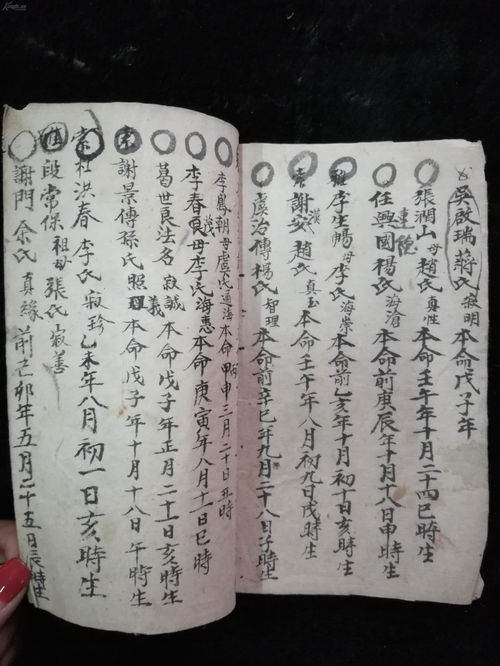 吳啟瑞蔣氏寂明本命戊子年
張潤山母趙氏真性本命壬午年十月二十四巳時生
任興國楊氏海滄本命前庚辰年十月十八日申時生
蓮德
李氏海崇本命前乙亥年十月初十日亥時生
謝安趙氏真玉本命壬午年八月初九日戌時生
虞治傳楊氏智理本命前辛巳年九月二十八日子時生
李鳳朝母虞氏通海本命甲申三月二十日丑時
李春母李氏海惠本命庚寅年八月十一日巳時
葛世良法名寂誠本命戊子年正月二十日亥時生
義
謝景傳孫氏照理本命戊子年十月十八日午時生
杜洪春李氏寂珍乙未年八月初一日亥時生
段常保祖母張氏寂善
謝門余氏真緣前己卯年五月二十五日辰時生